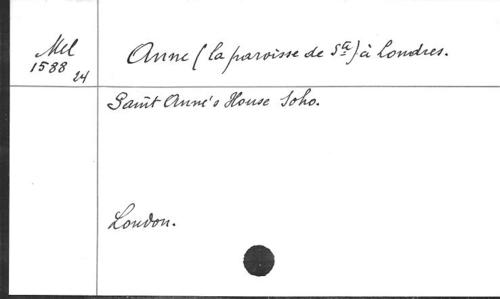 Mel
1588
24
Anne (la paroisse de Ste) à Londres.
Saint Anne's House Soho.
London.